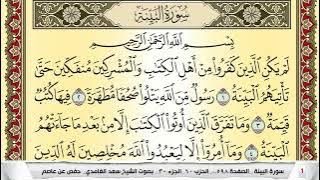 سُورَةُ البَيِّنَةِ
بِسْمِ ٱللَّهِ ٱلرَّحْمَٰنِ ٱلرَّحِيمِ
لَمْ يَكُنِ ٱلَّذِينَ كَفَرُوا۟ مِنْ أَهْلِ ٱلْكِتَٰبِ وَٱلْمُشْرِكِينَ مُنفَكِّينَ حَتَّىٰ
تَأْتِيَهُمُ ٱلْبَيِّنَةُ ١ رَسُولٌ مِّنَ ٱللَّهِ يَتْلُوا۟ صُحُفًا مُّطَهَّرَةً ٢ فِيهَا كُتُبٌ
قَيِّمَةٌ ٣ وَمَا تَفَرَّقَ ٱلَّذِينَ أُوتُوا۟ ٱلْكِتَٰبَ إِلَّا مِنۢ بَعْدِ مَا جَآءَتْهُمُ
ٱلْبَيِّنَةُ ٤ وَمَآ أُمِرُوٓا۟ إِلَّا لِيَعْبُدُوا۟ ٱللَّهَ مُخْلِصِينَ لَهُ
سورة البينة الصفحة ٥٩٨ الحزب ٦٠ الجزء ٣٠ بصوت الشيخ سعد الغامدي حفص عن عاصم